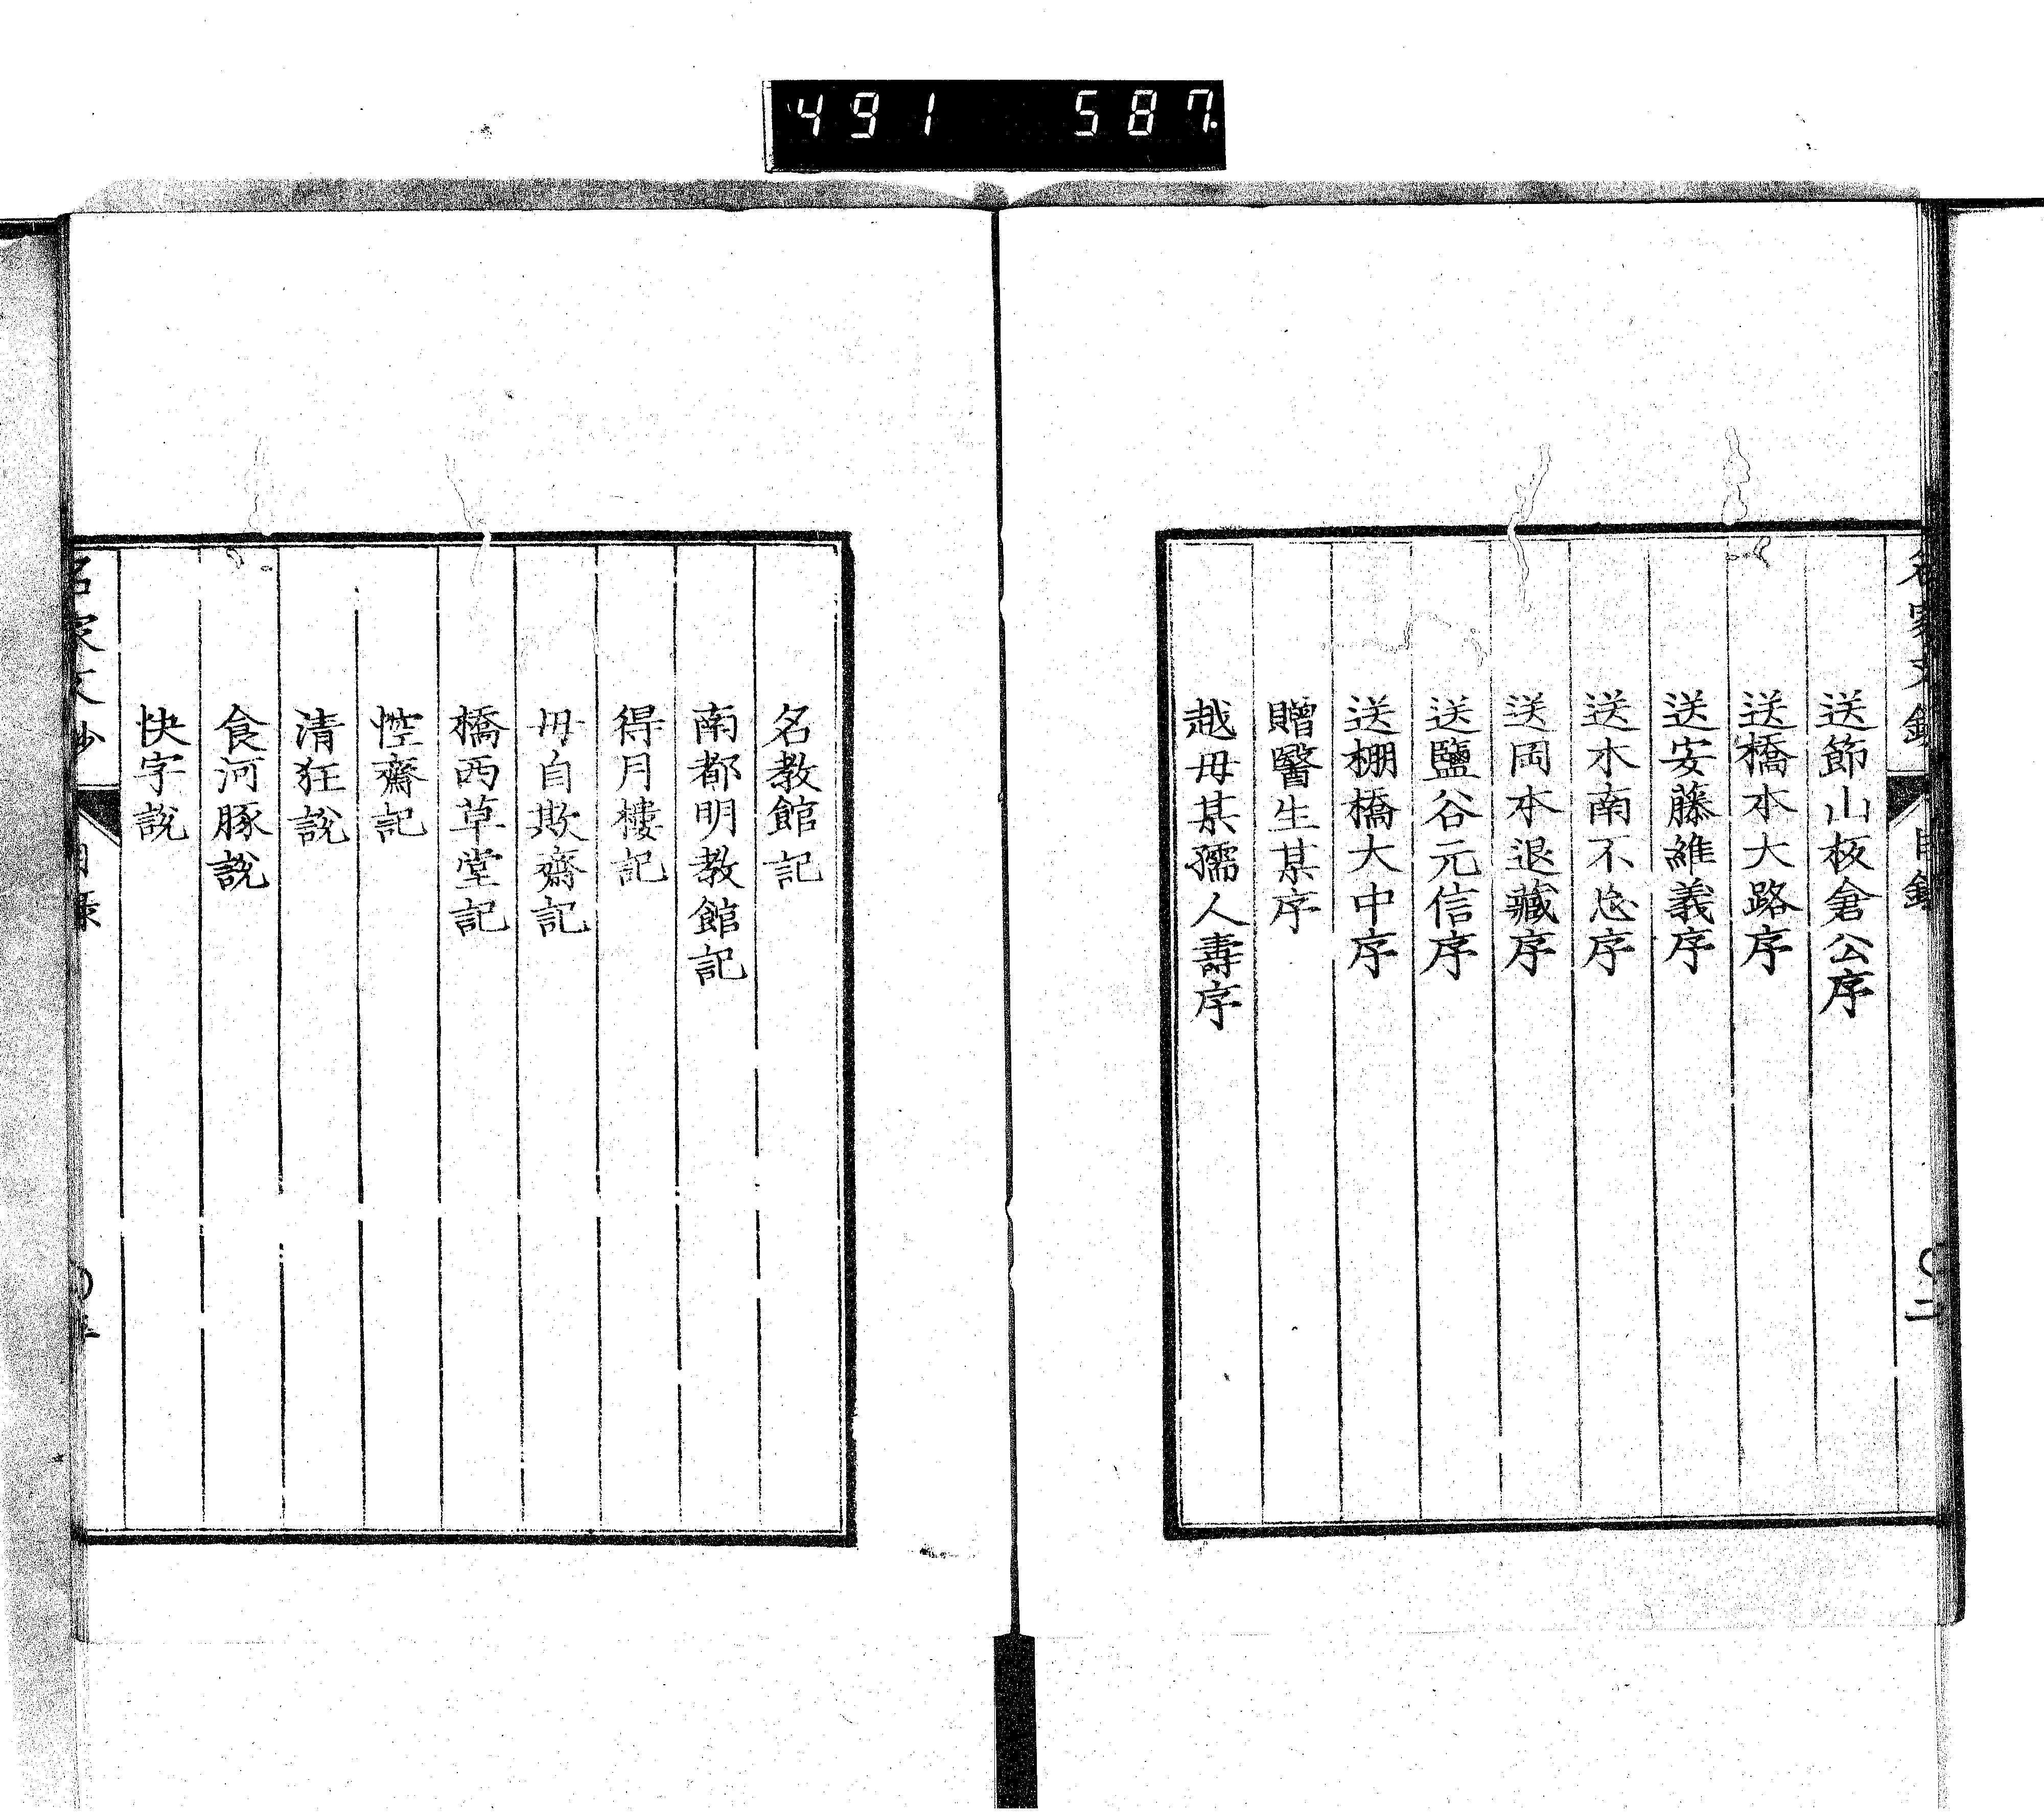 491 587
送節山板倉公序
送橋本大路序
送安藤維義序
送木南不忿序
送岡本退藏序
送鹽谷元信序
送棚橋大中序
贈醫生某序
越毋某孺人壽序
名教館記
南都明教館記
得月樓記
毋自欺齋記
橋西草堂記
悾齋記
清狂說
食河豚說
快字說